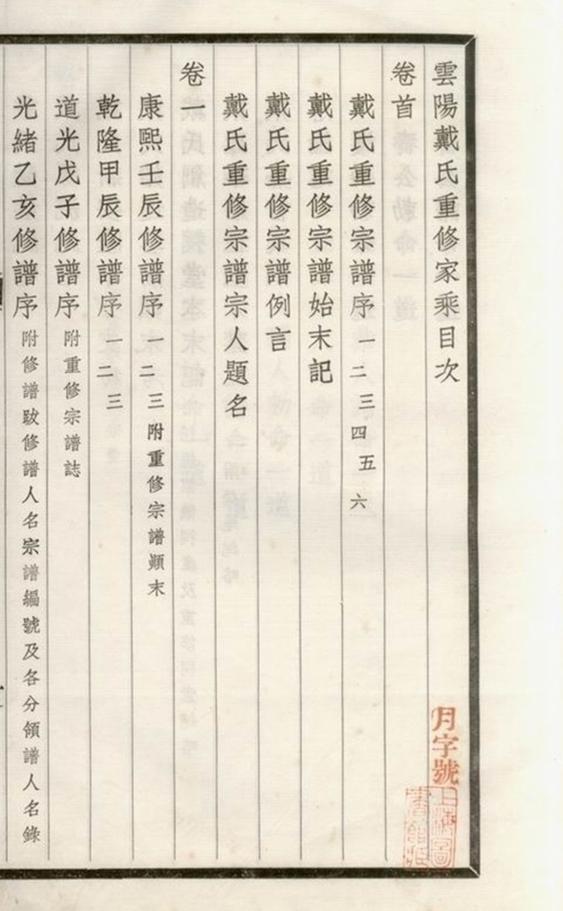 雲陽戴氏重修家乘目次
卷首
戴氏重修宗譜序 一 二 三 四 五 六
戴氏重修宗譜始末記
戴氏重修宗譜例言
戴氏重修宗譜宗人題名
卷一
康熙壬辰修譜序 一 二 三 附重修宗譜顚末
乾隆甲辰修譜序 一 二 三
道光戊子修譜序 附重修宗譜誌
光緒乙亥修譜序 附修譜跋修譜人名宗譜編號及各分領譜人名錄
月字號
上海圖書館藏